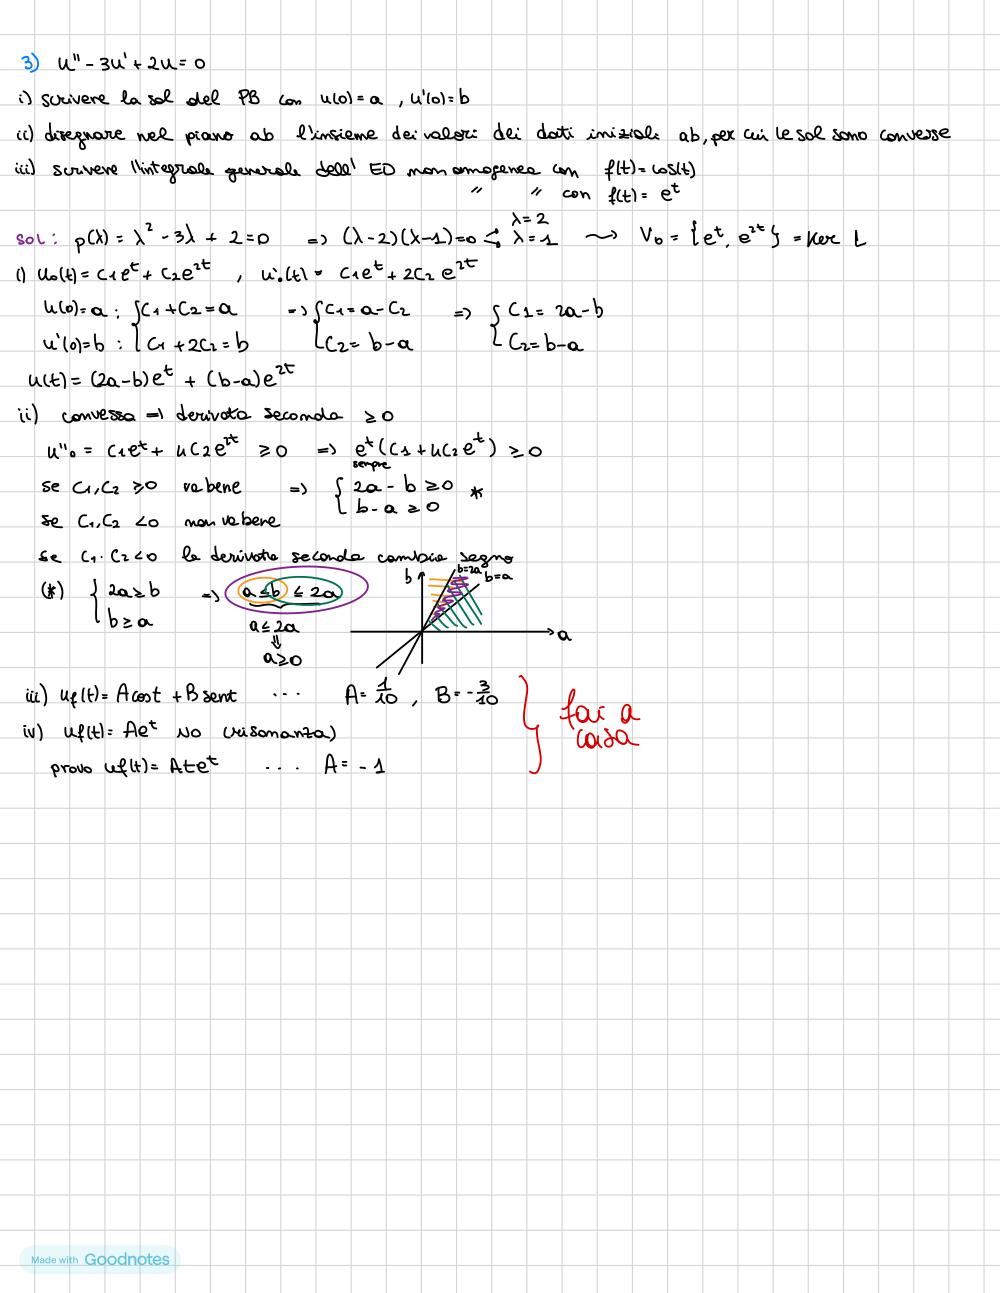 3) u'' - 3u' + 2u = 0
i) scrivere la sol del PB con u(0) = a , u'(0) = b
ii) disegnare nel piano ab l'insieme dei valori dei dati iniziali ab, per cui le sol sono convesse
iii) scrivere l'integrale generale dell' ED non omogenea con f(t) = cos(t)
" " con f(t) = e^t
sol: p(λ) = λ² - 3λ + 2 = 0 => (λ-2)(λ-1) = 0 < λ=2 λ=1 ⤳ V₀ = {e^t, e^2t} = Ker L
i) u₀(t) = c₁e^t + c₂e^2t , u'₀(t) = c₁e^t + 2c₂e^2t
u(0) = a : { c₁ + c₂ = a => { c₁ = a - c₂ => { c₁ = 2a - b
u'(0) = b : { c₁ + 2c₂ = b { c₂ = b - a { c₂ = b - a
u(t) = (2a-b)e^t + (b-a)e^2t
ii) convessa => derivata seconda ≥ 0
u''₀ = c₁e^t + 4c₂e^2t ≥ 0 => e^t (c₁ + 4c₂e^t) ≥ 0
sempre
se c₁, c₂ ≥ 0 va bene => { 2a - b ≥ 0 *
{ b - a ≥ 0
se c₁, c₂ < 0 non va bene
se c₁ · c₂ < 0 la derivata seconda cambia segno
(*) { 2a ≥ b => a ≤ b ≤ 2a b b=2a b=a
{ b ≥ a
a ≤ 2a a
⇓
a ≥ 0
iii) uf(t) = A cost + B sent ... A = 1/10 , B = -3/10
iv) uf(t) = Ae^t NO (risonanza)
provo uf(t) = Ate^t ... A = -1
fai a
casa
Made with Goodnotes